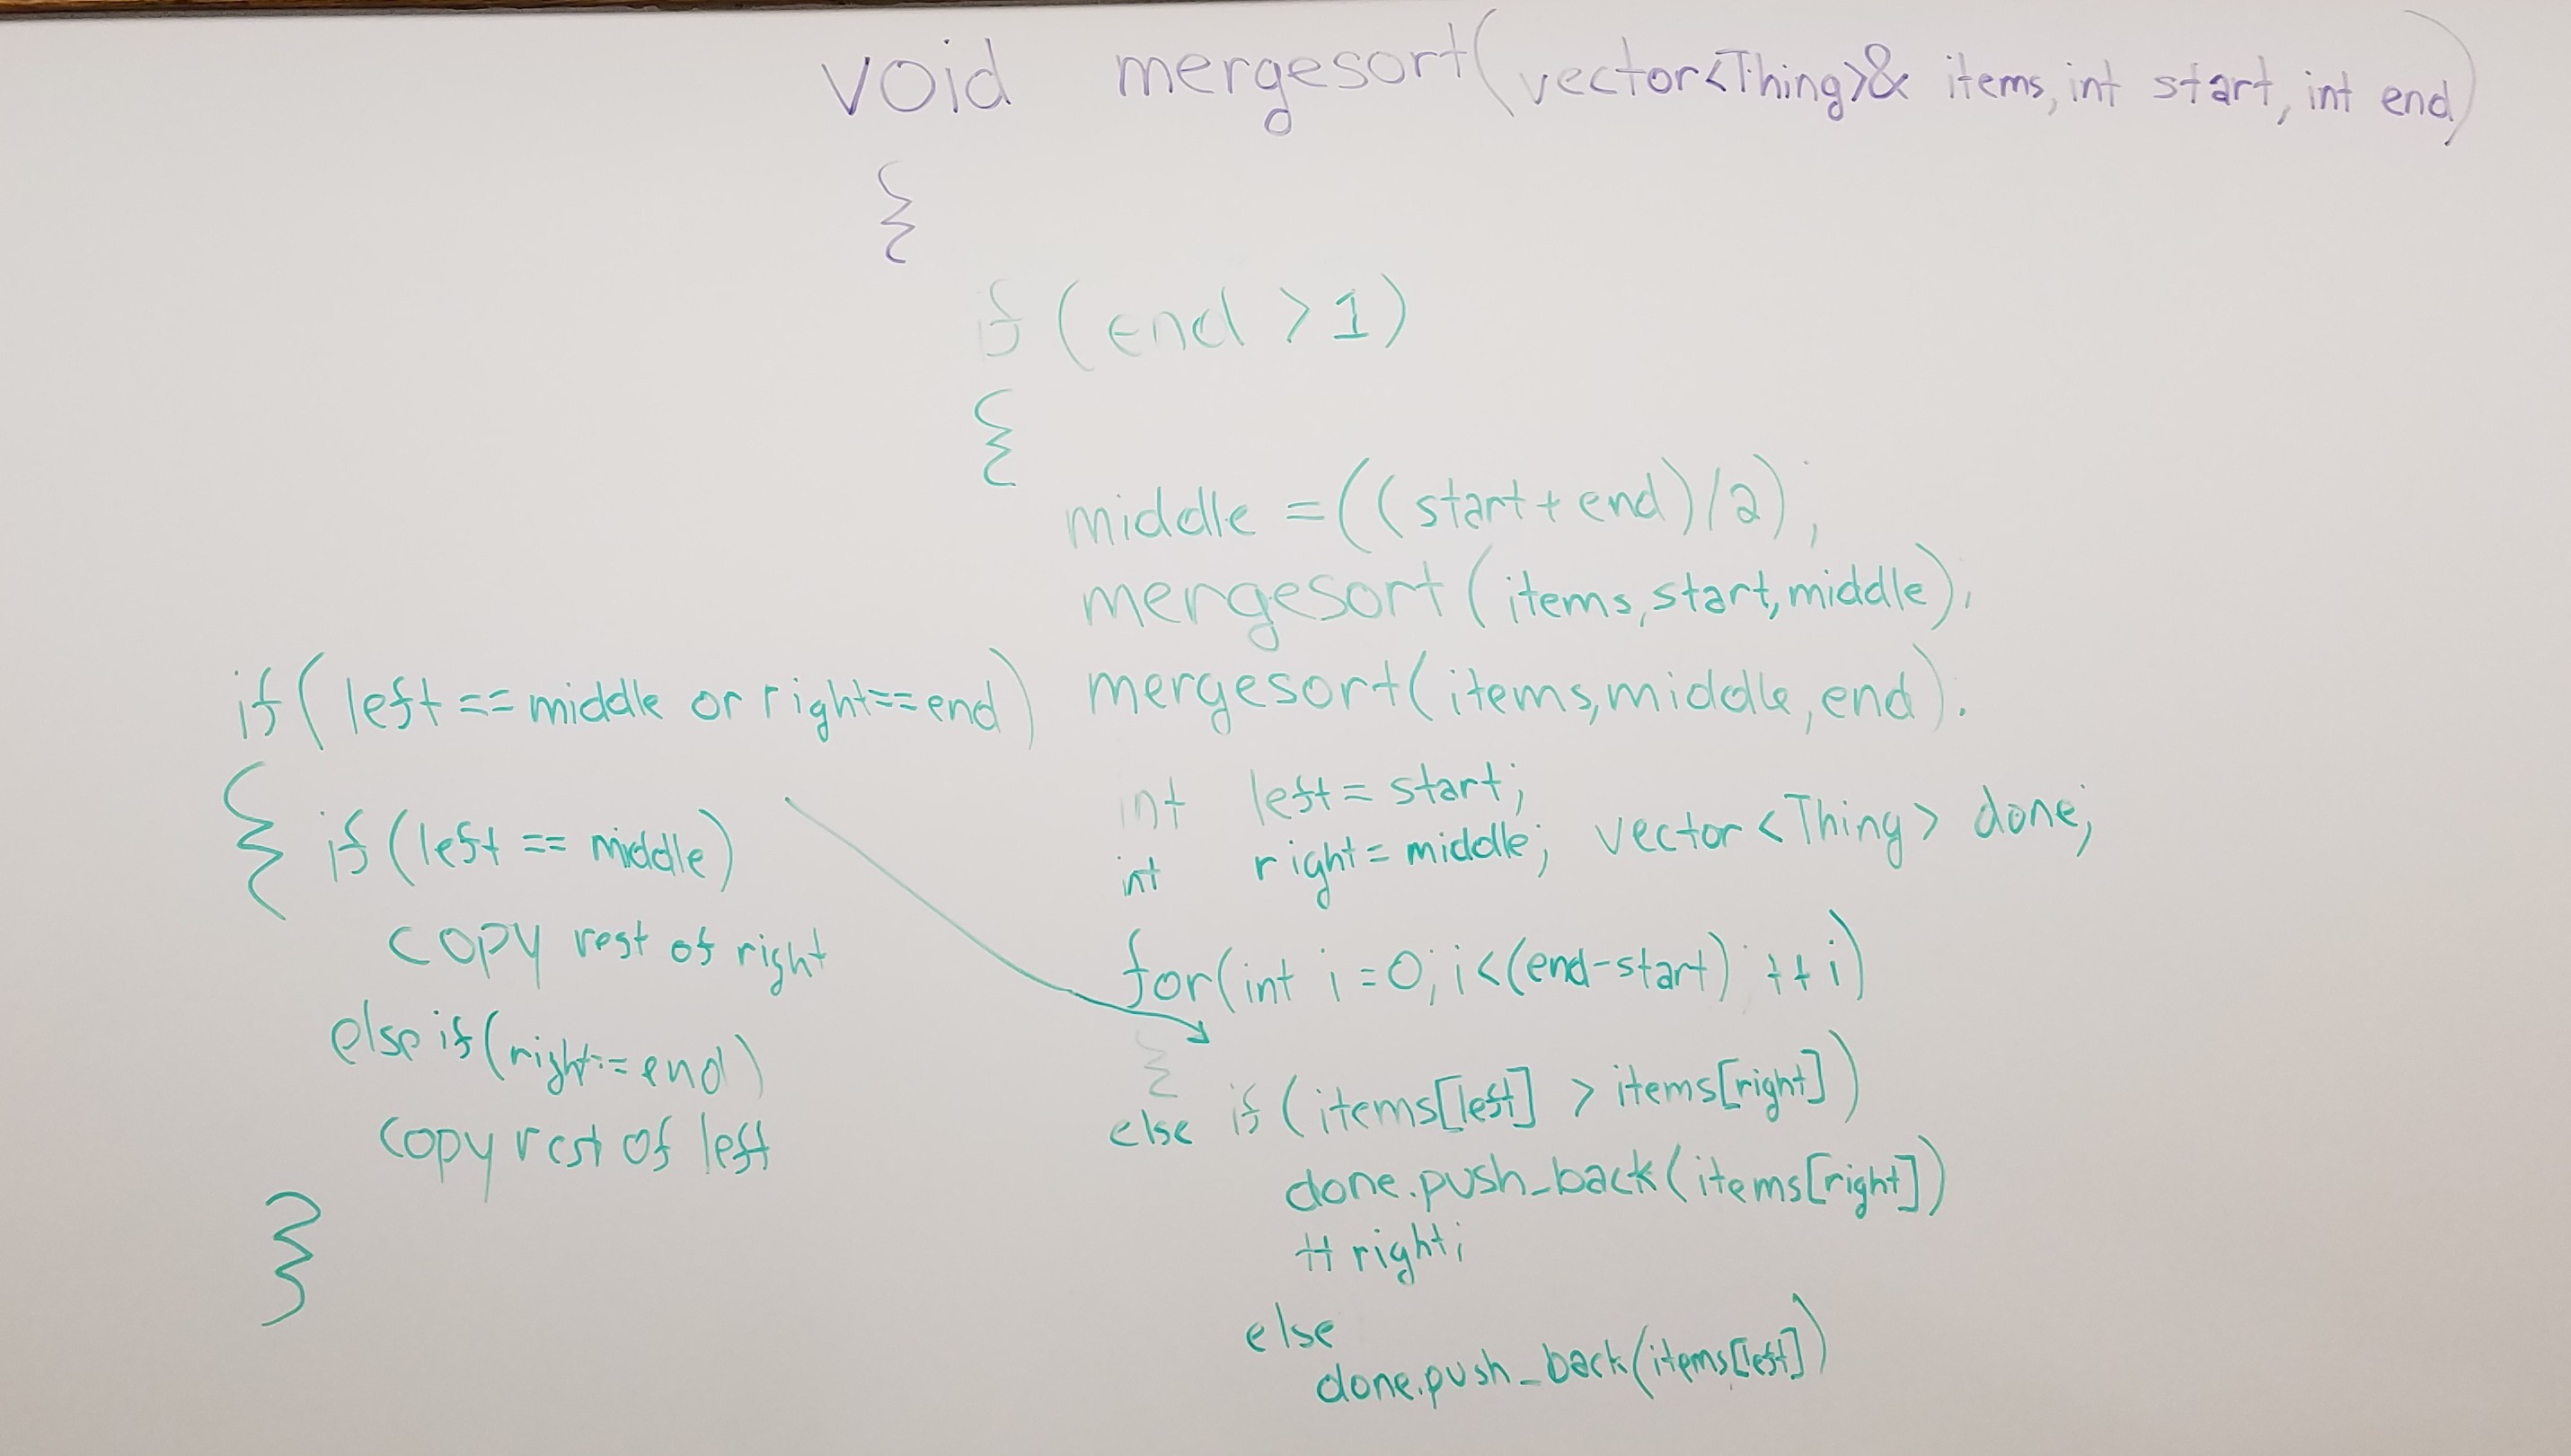 void mergesort(vector<Thing>& items, int start, int end)
{
if (end > 1)
{
middle = ((start + end)/2);
mergesort(items, start, middle);
mergesort(items, middle, end).
int left = start;
int right = middle; vector <Thing> done;
for(int i = 0; i < (end-start) ; ++i)
{
else if (items[left] > items[right])
done.push_back(items[right])
++ right;
else
done.push_back(items[left])
if( left == middle or right == end)
{ if (left == middle)
copy rest of right
else if (right == end)
copy rest of left
}